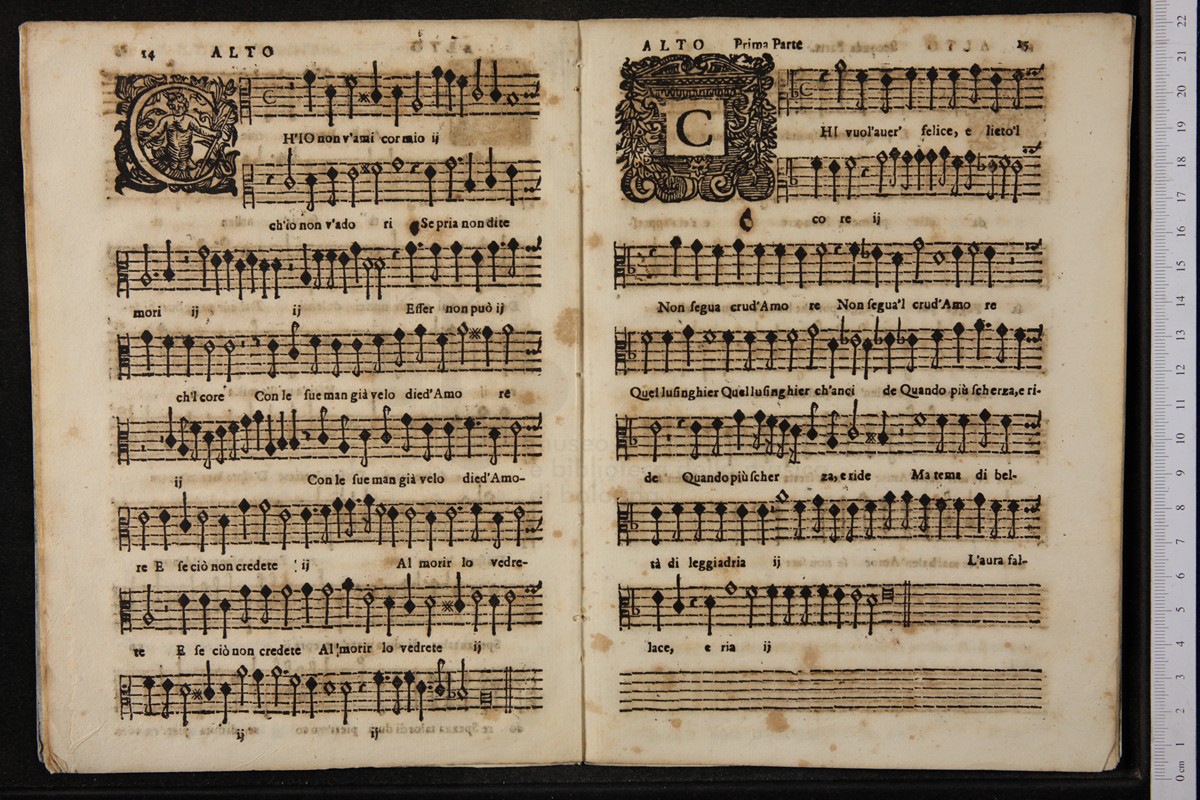 14 ALTO
C
H'IO non v'ami cor mio ij
ch'io non v'ado ri Se pria non dite
mori ij ij Esser non può ij
ch'l core Con le sue man già velo died'Amo re
ij Con le sue man già velo died'Amo-
re E se ciò non credete ij Al morir lo vedre-
te E se ciò non credete Al morir lo vedrete ij
ij ij
ALTO Prima Parte 15
C
HI vuol'auer' felice, e lieto'l
co re ij
Non segua crud'Amo re Non segua'l crud'Amo re
Quel lusinghier Quel lusinghier ch'anci de Quando più scherza, e ri-
de Quando più scher za, e ride Ma tema di bel-
tà di leggiadria ij L'aura fal-
lace, e ria ij
0 cm 1 2 3 4 5 6 7 8 9 10 11 12 13 14 15 16 17 18 19 20 21 22